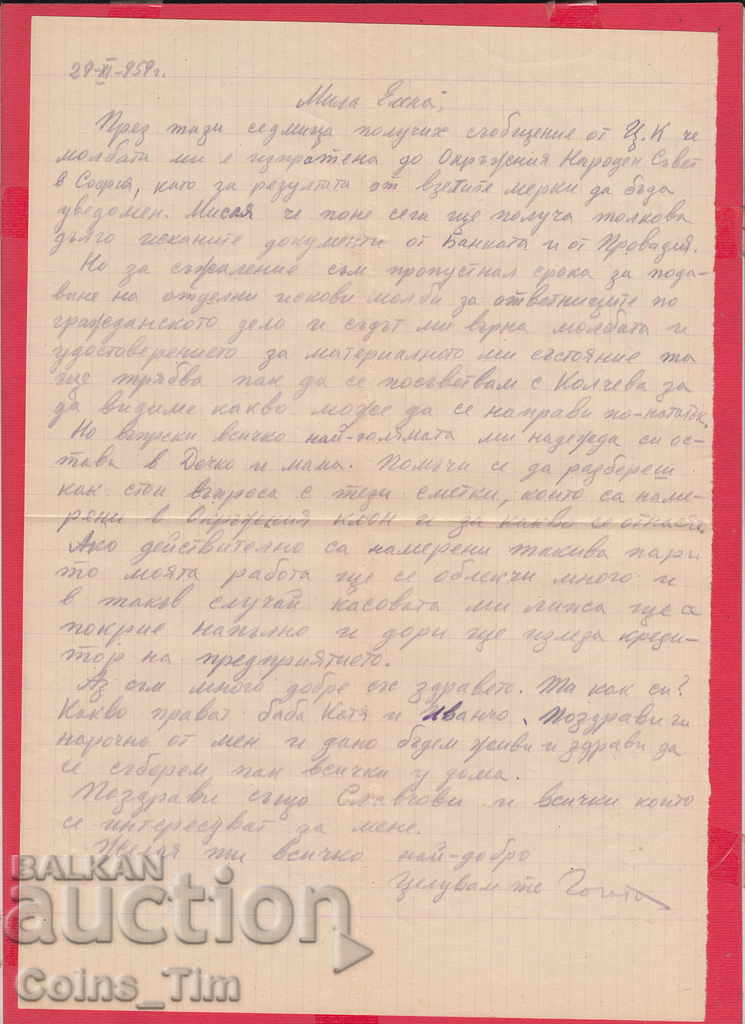 29-XI-959г.
Мила Елена,
През тази седмица получих съобщение от Ц.К че
молбата ми е изпратена до Окръжния Народен Съвет
в София, като за резултата от взетите мерки да бъда
уведомен. Мисля че поне сега ще получа толкова
дълго исканите документи от Банката и от Провадия.
Но за съжаление съм пропуснал срока за пода-
ване на отделни искови молби за ответниците по
гражданското дело и съдът ми върна молбата и
удостоверението за материалното ми състояние та
ще трябва пак да се посъветвам с Колчева за
да видиме какво може да се направи по-нататък.
Но въпреки всичко най-голямата ми надежда си ос-
тава в Дочко и мама. Помъчи се да разбереш
как стои въпроса с тези сметки, които са наме-
рени в Окръжния клон и за какво се отнасят.
Ако действително са намерени такива пари
то моята работа ще се облекчи много и
в такъв случай касовата ми липса ще се
покрие напълно и дори ще изляза креди-
тор на предприятието.
Аз съм много добре със здравето. Ти как си?
Какво правят баба Катя и Иванчо, поздрави ги
нарочно от мен и дано бъдем живи и здрави да
се съберем пак всички у дома.
Поздрави също Славчови и всички които
се интересуват за мене.
Желая ти всичко най-добро
Целувам те
BALKAN
auction
Coins_Tim